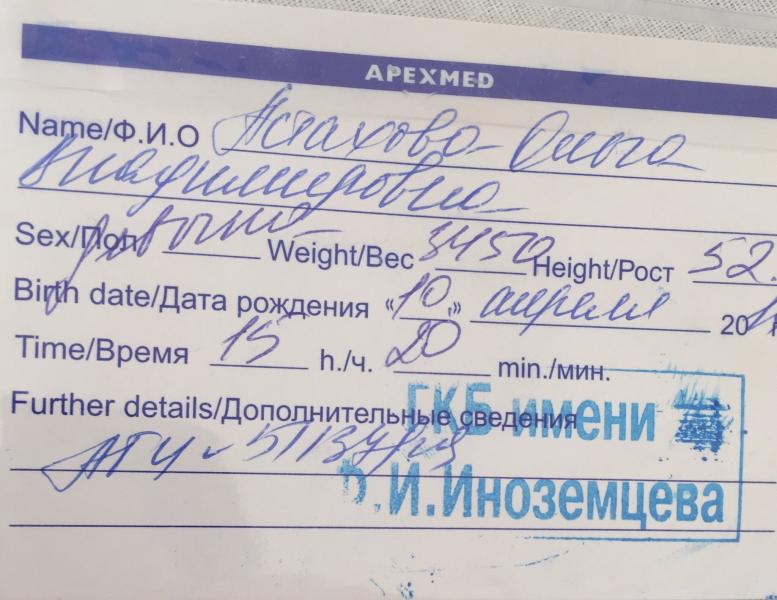 APEXMED
Name/Ф.И.О Астахова Ольга
Владимировна
Sex/Пол девочка Weight/Вес 3450 Height/Рост 52
Birth date/Дата рождения «10» апреля 20
Time/Время 15 h./ч. 20 min./мин.
Further details/Дополнительные сведения
ГКБ имени
Ф.И.Иноземцева